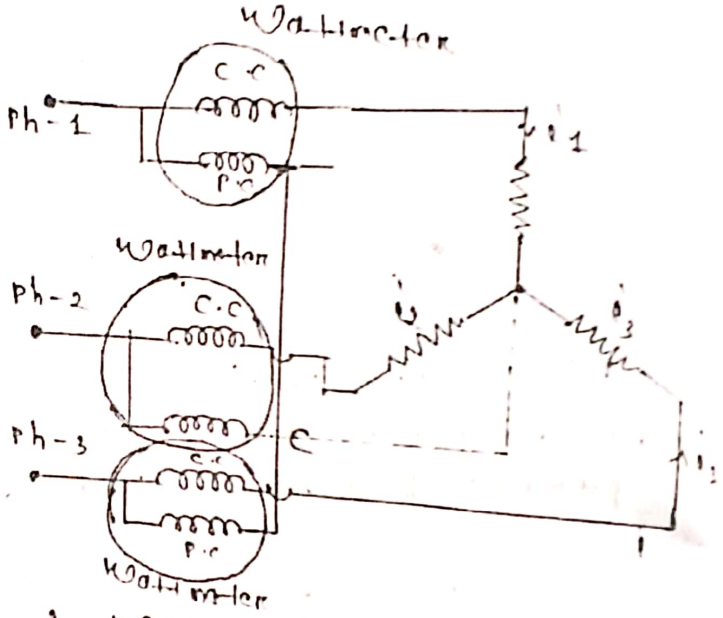 Wattmeter
C.C
Ph-1
i1
P.C
Wattmeter
Ph-2
C.C
i2
i3
Ph-3
C.C
P.C
Wattmeter